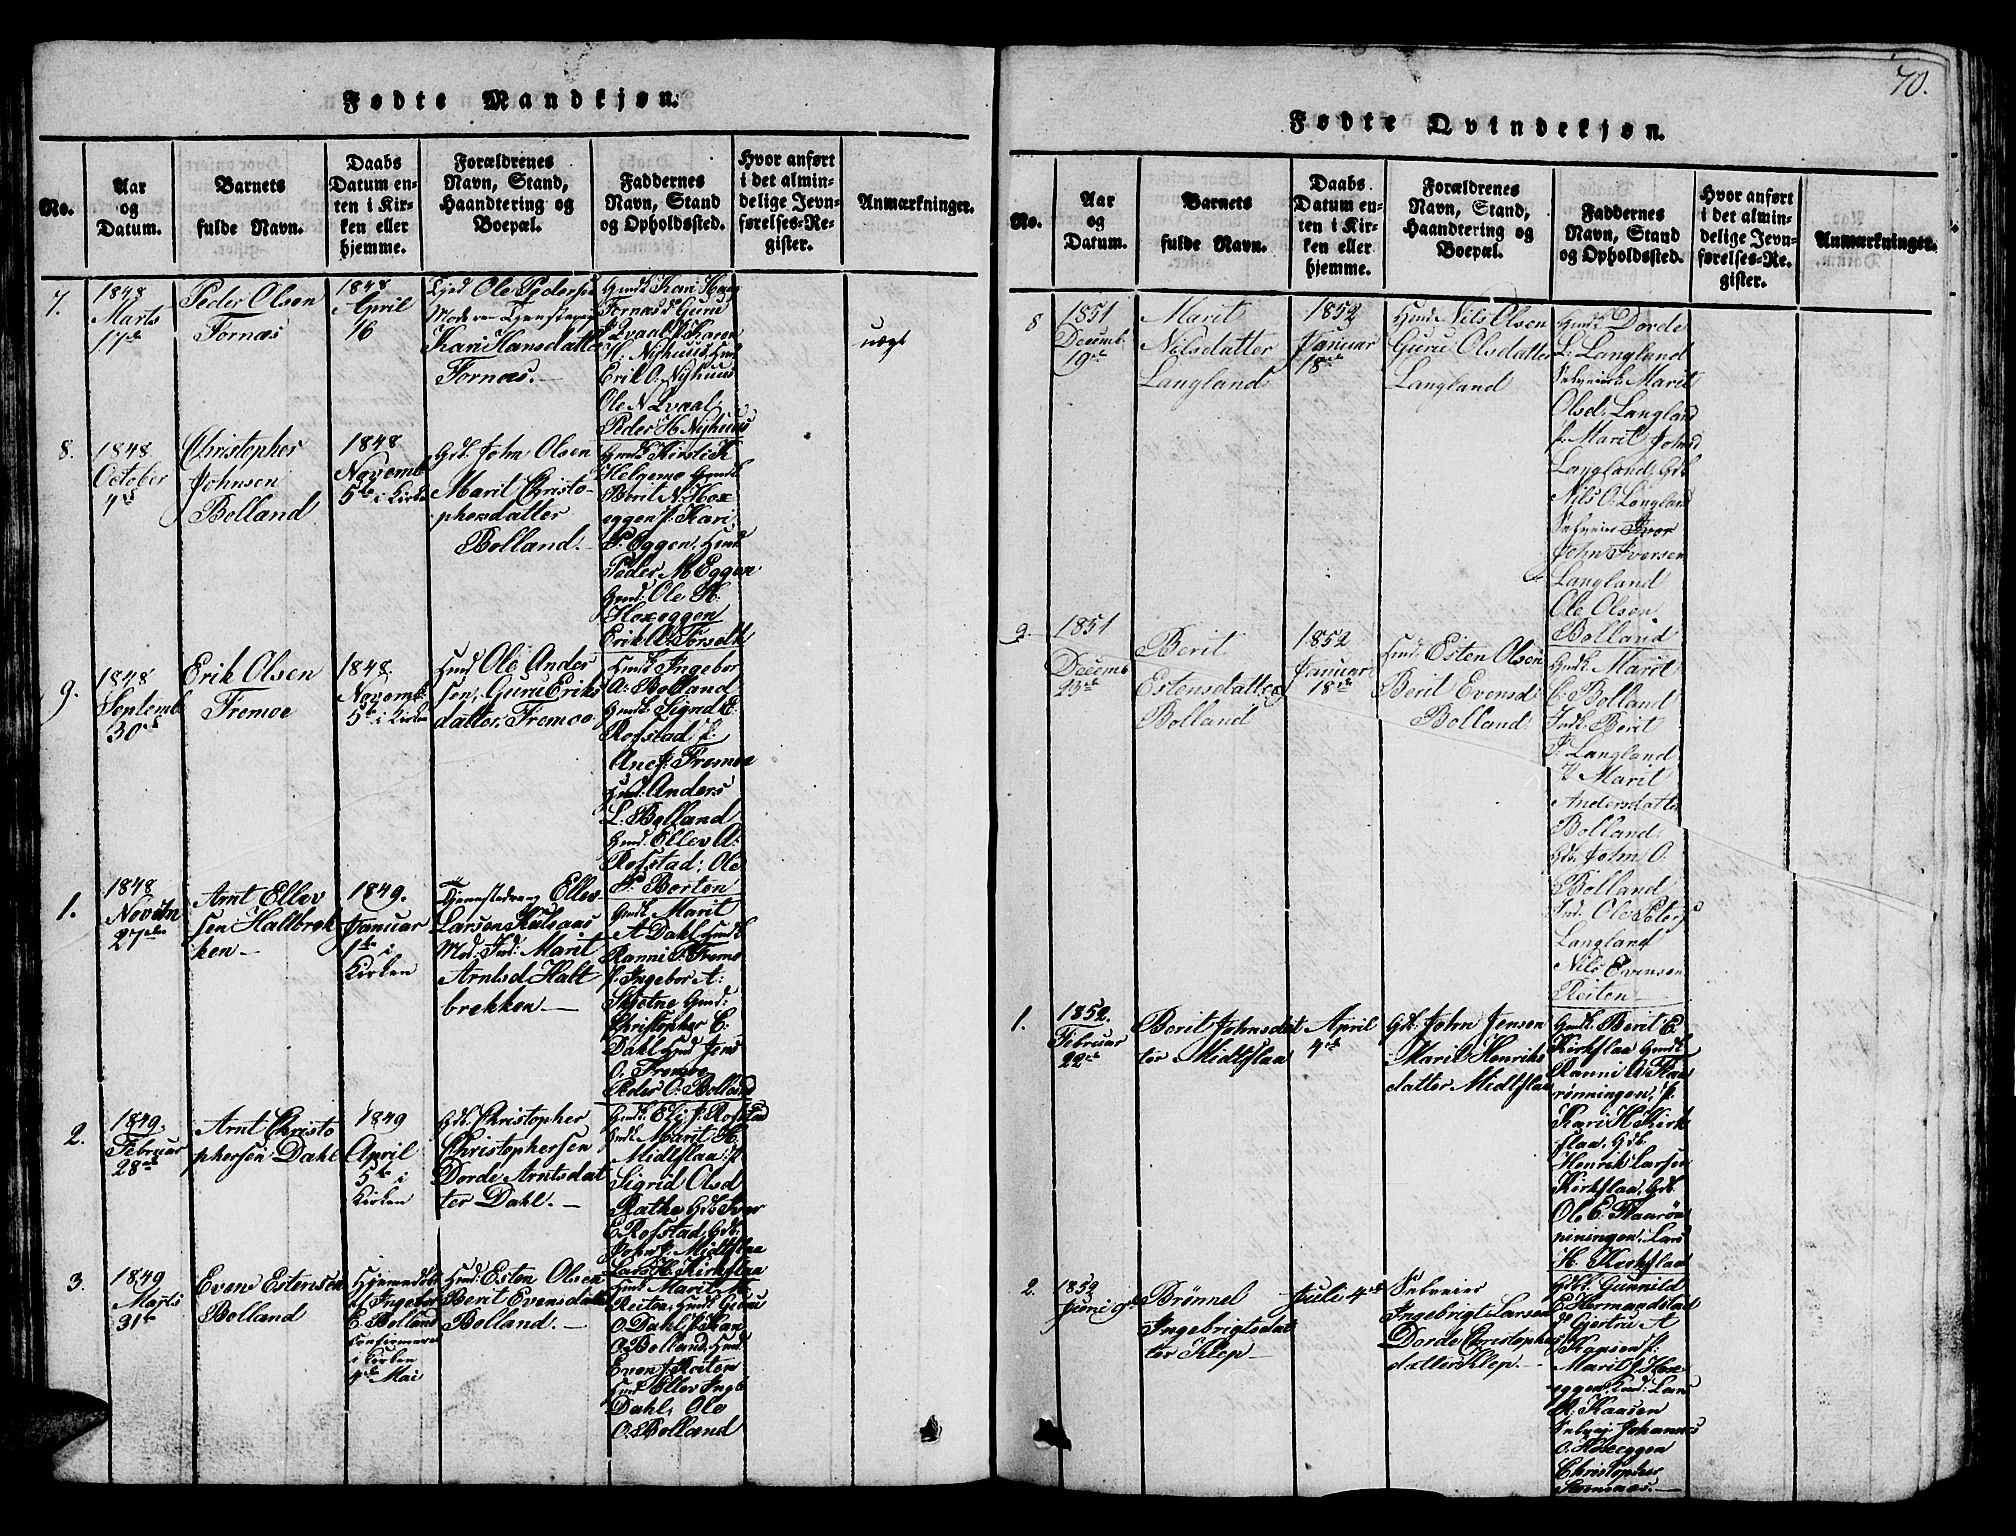 70.
Fødte Mandkjøn.
No.
Aar
og
Datum.
Barnets
fulde Navn.
Daabs
Datum en-
ten i Kir-
ken eller
hjemme.
Forældrenes
Navn, Stand,
Haandtering og
Boepæl.
Faddernes
Navn, Stand
og Opholdssted.
Hvor anført
i det almin-
delige Jevn-
førelses-Re-
gister.
Anmærkninger.
7.
1848
Marts
17de
Peder Olsen
Fornæs
1848
April
16
Ole Pedersen
Kari Hansdatter
Fornæs.
Gmdk Kari Haag
Fornæsd Guru
Qvaal, p Karen
H. Nyhuus, Gmd
Erik O. Nyhuus
Ole N Qvaal,
Peder H. Nyhuus
uægt
8.
1848
October
4de
Christopher
Johnsen
Bolland
1848
Novemb
5te i Kirken
Gdb. John Olsen
Marit Christo-
phersdatter
Bolland.
Gmdk Kirsti K
Helgemo Gmdk
Berit N. Hox
eggen p. Kari
P. Eggen, Gmd
Peder M Eggen
Gmd: Ole A.
Hoxeggen
Erik A. Forseth
9.
1848
Septemb
30de
Erik Olsen
Fremoe
1848
Novemb:
5te i Kirken
Hmd Ole Ander
sen, Guru Eriks
datter, Fremoe
Hmdk Ingebor
A: Bolland
Gmdk Sigrid E.
Rofstad p.
Ane J. Fremoe
Hmd: Anders
L. Bolland
Gmd: Ellev A.
Rofstad, Ole
P. Borten
1.
1848
Novem
27de
Arnt Ellev
sen Haltbrek
ken
1849.
Januar
1te i
Kirken
Tjenestedreng Ellev
Larsen Kulsaas
Mod: Ind: Marit
Arntsd Halt
brekken
Gmdk Marit
A Dahl, Hmdk
Ranni O. Fremo
p. Ingebor A:
Skjetne Gmd:
Christopher C.
Dahl Hmd Jens
O. Fremoe
Peder O. Bolland
2.
1849.
Februar
28de
Arnt Christo
phersen Dahl
1849
April
5te i
Kirken
Gdb. Christopher
Christophersen
Dorde Arntsdat
ter Dahl.
Gmdk Eli J. Rofstad
Gmdk Marit H.
Midtflaa p
Sigrid Olsd
Rathe Gdb Iver
E. Rofstad, Gdb.
John J. Midtflaa
Lars H. Kirkflaa
3.
1849
Marts
31te
Even Estensen
Bolland
Hjemmedøbt
af Ingebor
E. Bolland
Confirmeret
i Kirken
4de Mai
Hmd: Esten Olsen
Berit Evensdatt
Bolland.
Hmdk Marit A.
Reiten, Gmdk Guru
O. Dahl p. Kari
O. Bolland, Gmd.
Even J. Reiten
Gmd Ellev Ingb
Dahl, Ole
O. Bolland
Fødte Qvindekjøn.
No.
Aar
og
Datum.
Barnets
fulde Navn.
Daabs
Datum en-
ten i Kir-
ken eller
hjemme.
Forældrenes
Navn, Stand,
Haandtering og
Boepæl.
Faddernes
Navn, Stand
og Opholdssted.
Hvor anført
i det almin-
delige Jevn-
førelses-Re-
gister.
Anmærkninger.
8
1851
Decemb.
19de
Marit
Nilsdatter
Langland
1852
Januar
18de
Hmd: Nils Olsen
Guru Olsdatter
Langland
Gmdk Dorde
L. Langland
Selveierk Marit
Olsd. Langland
p. Marit Johnsd
Langland, Gdb
Nils O. Langland
Selveier
John Iversen
Langland
Ole Olsen
Bolland
9.
1851
Decemb
23de
Berit
Estensdatter
Bolland
1852
Januar
18de
Hmd: Esten Olsen
Berit Evensd
Bolland
Gmdk. Marit
Bolland
Indk: Berit
P. Langland
p Marit
Andersdatter
Bolland
Gdb. John O.
Bolland
Ind: Ole Peters
Langland
Nils Evensen
Reiten
1.
1852.
Februar
22de
Berit Johnsdat
ter Midtflaa
April
4de
Gdb. John Jensen
Marit Henriks
datter Midtflaa
Gmdk. Berit E.
Kirkflaa Gmdk
Ranni A. Flaa
rønningen, p.
Kari H Kirk
flaa, Gdb.
Henrik Larsen
Kirkflaa, Gdb.
Ole E. Flaarøn
ningen, Lars
H. Kirkflaa
2.
1852
Juni 9de
Brønnel
Ingebrigtsdat
ter Klep
Juli 4de
Selveier
Ingebrigt Larsen
Dorde Christophers
datter Klep.
Gdk Gunnild
E. Hermandstad
Gjertru A
Kaasen p.
Marit J. Hox
eggen, Gmd: Lars
A. Kaasen
Selvei Johannes
O. Hoxeggen
Christopher